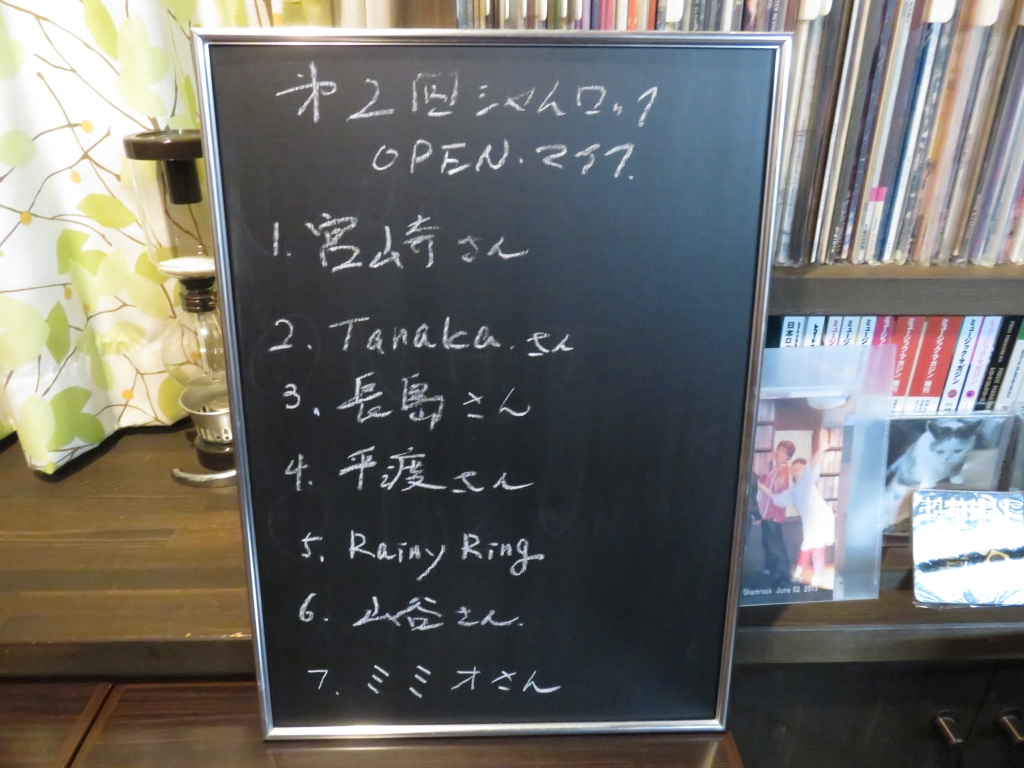 第2回シャムロック
OPEN.マイク.
1. 宮崎さん
2. Tanaka.さん
3. 長島さん
4. 平渡さん
5. Rainy Ring
6. 山谷さん.
7. ミミオさん
ミュージック・マガジン
ミュージック・マガジン
ミュージック・マガジン
Shamrock June 02, 2013